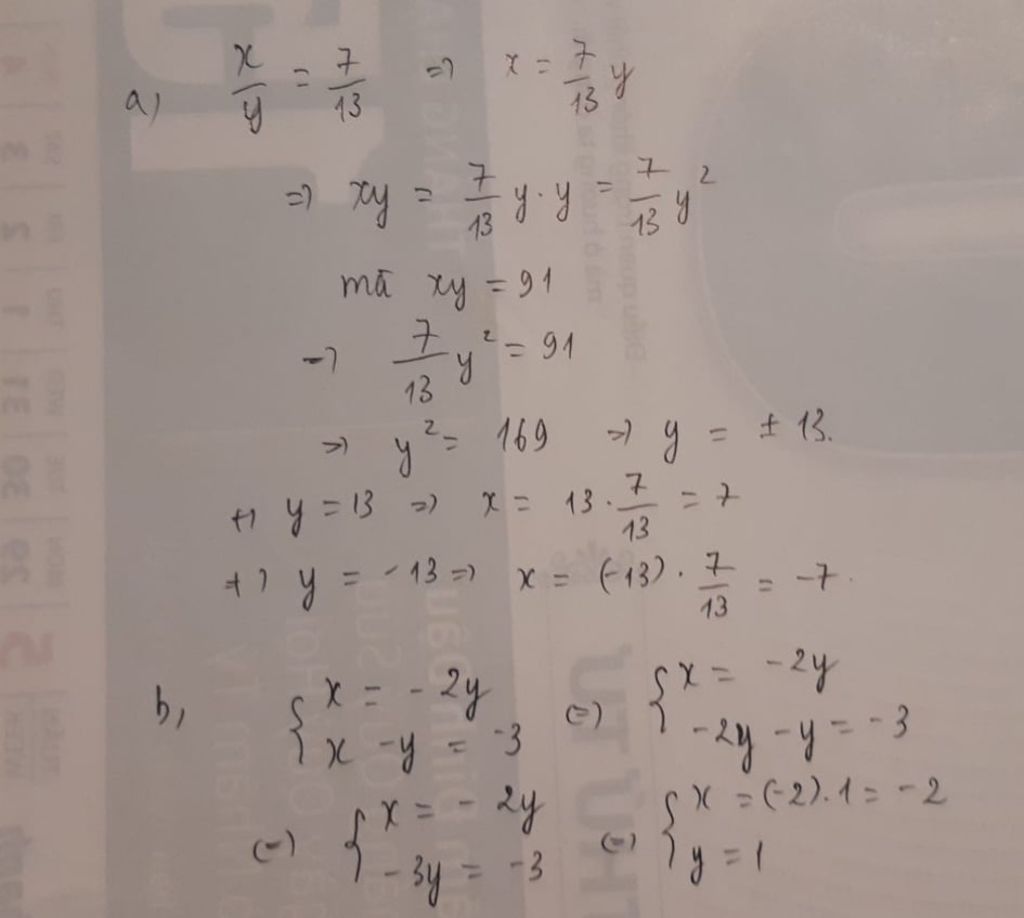 a) x/y = 7/13 => x = 7/13 y
=> xy = 7/13 y . y = 7/13 y²
mà xy = 91
=> 7/13 y² = 91
=> y² = 169 => y = ± 13.
+) y = 13 => x = 13 . 7/13 = 7
+) y = -13 => x = (-13) . 7/13 = -7.
b, { x = -2y (=) { x = -2y
x - y = -3 -2y - y = -3
(=) { x = -2y (=) { x = (-2).1 = -2
-3y = -3 y = 1